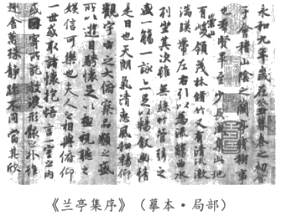 永和九年歲在癸丑暮春之初會
于會稽山陰之蘭亭脩稧事
也羣賢畢至少長咸集此地
有崇山峻領茂林脩竹又有清流激
湍暎帶左右引以為流觴曲水
列坐其次雖無絲竹管弦之
盛一觴一詠亦足以暢敘幽情
是日也天朗氣清惠風和暢仰
觀宇宙之大俯察品類之盛
所以遊目騁懷足以極視聽之
娛信可樂也夫人之相與俯仰
一世或取諸懷抱悟言一室之內
或因寄所託放浪形骸之外雖
趣舍萬殊靜躁不同當其欣
《兰亭集序》（摹本·局部）